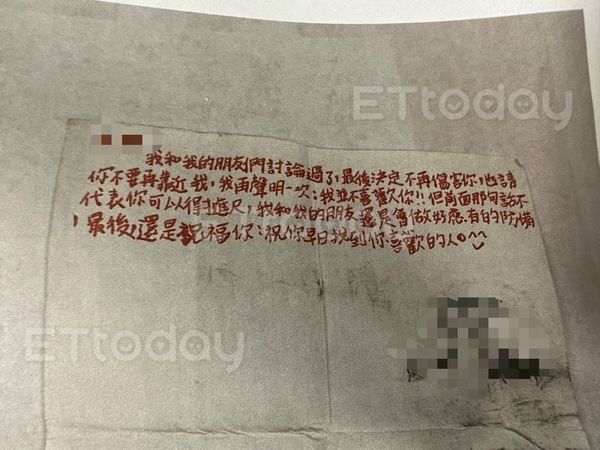 ETtoday
我和我的朋友們討論過了,最後決定不再傷害你,也請
你不要再靠近我,我再聲明一次:我並不喜歡你!!但前面那句話不
代表你可以得寸進尺,我和我的朋友還是會做好應有的防備
!最後,還是祝福你:祝你早日找到你喜歡的人。^^
ETtoday